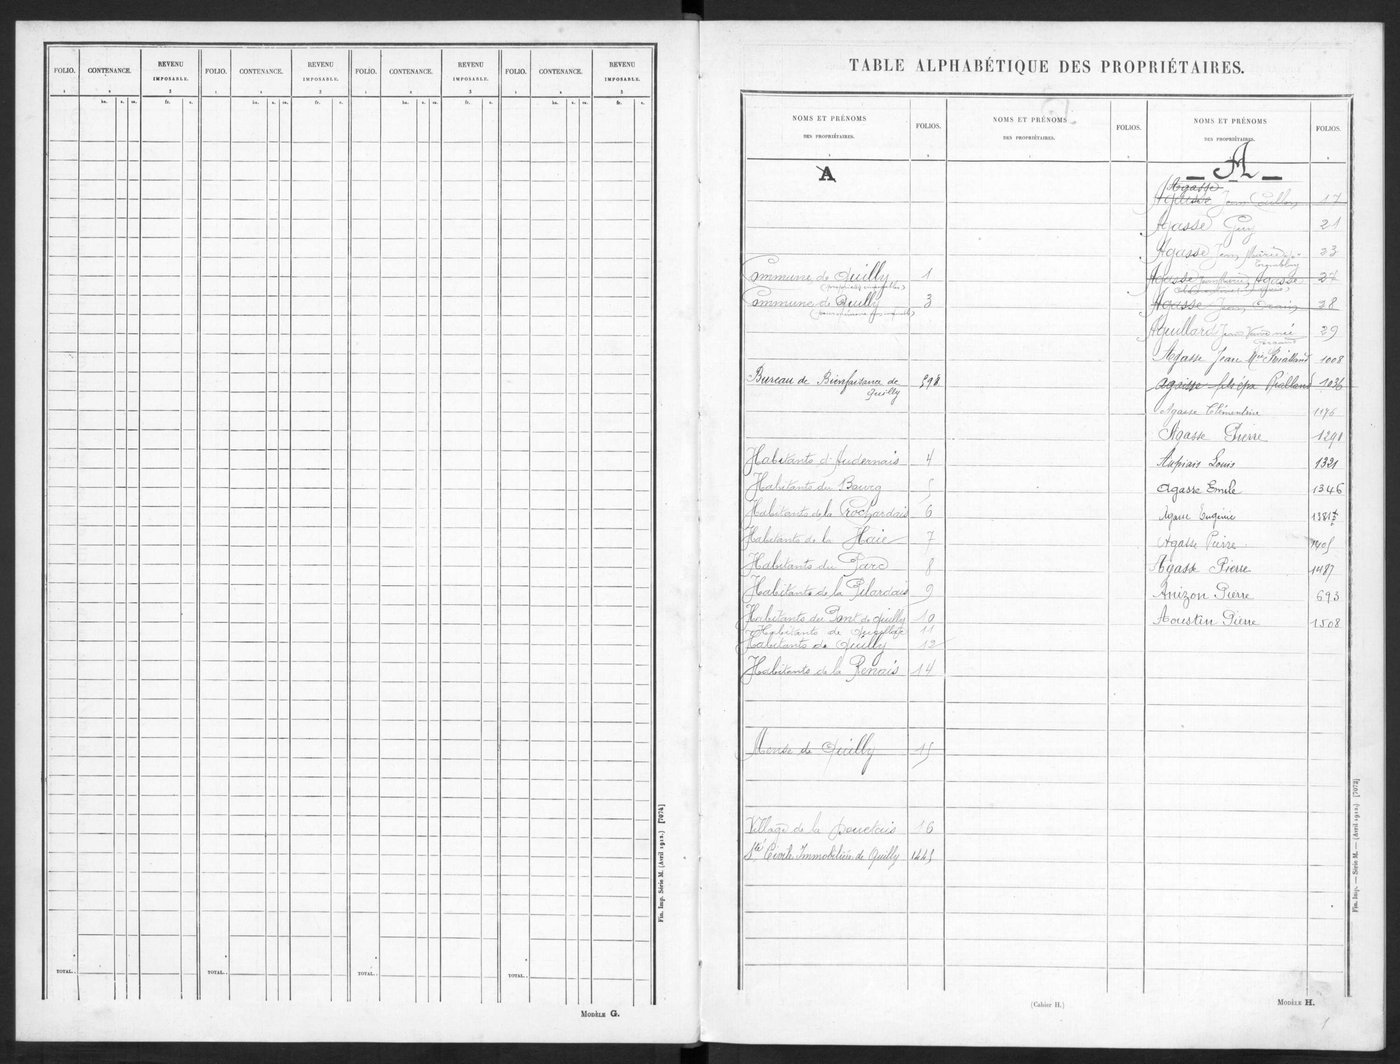 FOLIO. CONTENANCE. REVENU IMPOSABLE. FOLIO. CONTENANCE. REVENU IMPOSABLE. FOLIO. CONTENANCE. REVENU IMPOSABLE. FOLIO. CONTENANCE. REVENU IMPOSABLE.
1 2 3 1 2 3 1 2 3 1 2 3
ha. a. ca. fr. c. ha. a. ca. fr. c. ha. a. ca. fr. c. ha. a. ca. fr. c.
TOTAL.. TOTAL.. TOTAL.. TOTAL..
Fin. Imp. Série M. (Avril 1912.) [7074]
MODÈLE G.
TABLE ALPHABÉTIQUE DES PROPRIÉTAIRES.
NOMS ET PRÉNOMS DES PROPRIÉTAIRES. FOLIOS. NOMS ET PRÉNOMS DES PROPRIÉTAIRES. FOLIOS. NOMS ET PRÉNOMS DES PROPRIÉTAIRES. FOLIOS.
A
Commune de Quilly 1
Commune de Quilly 3
Bureau de Bienfaisance de
Quilly
Habitants d'Audernais 4
Habitants du Bourg 5
Habitants de la Crochardais 6
Habitants de la Haie 7
Habitants du Parc 8
Habitants de la Pilardais 9
Habitants du Pont de Quilly 10
Habitants de 11
Habitants de Quilly 12
Habitants de la Renais 14
Mense de Quilly 15
Village de la 16
Sté Civile Immobilière de Quilly 1445
A
Agasse
Jean 17
Agasse Guy 21
Agasse Jean 23
Agasse Agasse 27
Agasse Jean 28
Aguillard 29
Agasse Jean Rialland 1008
Agaisse Rialland 1036
Agasse Clémentine 1176
Agasse Pierre 1291
Aupiais Louis 1321
Agasse Emile 1346
Agasse Eugénie
Agasse Pierre 1405
Agasse Pierre 1487
Anizon Pierre 693
Aoustin Pierre 1508
(Cahier H.)
MODÈLE H.
Fin. Imp. — Série M. — (Avril 1912.) [7073]
1